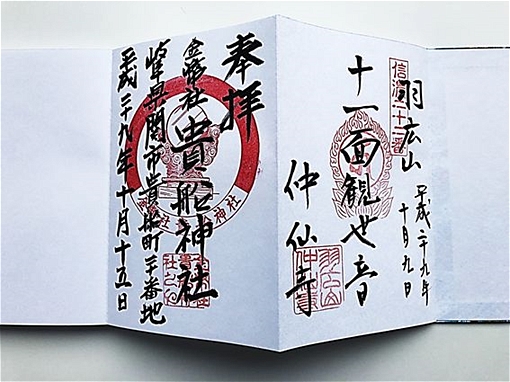 信濃二十二番
羽広山
平成二十九年
十月九日
十一面観世音
仲仙寺
奉拝
金幣社
貴船神社
岐阜県関市貴船町番地
平成二十九年十月十五日